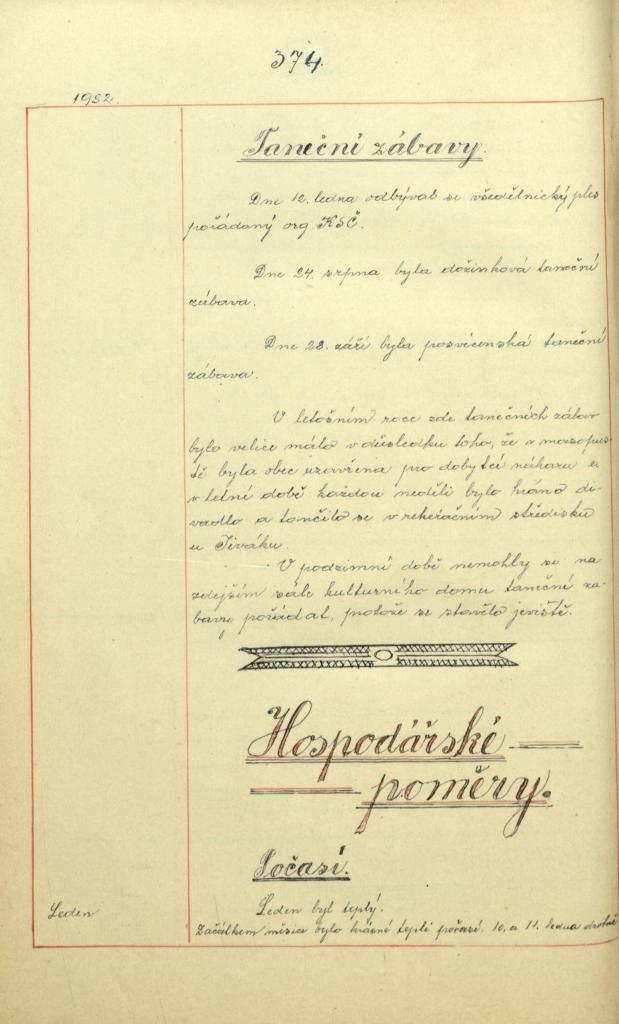 374.
1952.
Taneční zábavy.
Dne 12. ledna odbýval se všedělnický ples
pořádaný org. KSČ.
Dne 24. srpna byla dožinková taneční
zábava.
Dne 28. září byla posvícenská taneční
zábava.
V letošním roce zde tanečních zábav
bylo velice málo v důsledku toho, že v masopus-
tě byla obec uzavřena pro dobytčí nákazu a
v letní době každou neděli bylo hráno di-
vadlo a tančilo se v rekreačním středisku
u Jiváku.
V podzimní době nemohly se na
zdejším sále kulturního domu taneční zá-
bavy pořádat, protože se stavělo jeviště.
Hospodářské
poměry.
Počasí.
Leden
Leden byl teplý.
Začátkem měsíce bylo krásné teplé počasí. 10. a 11. ledna drobně